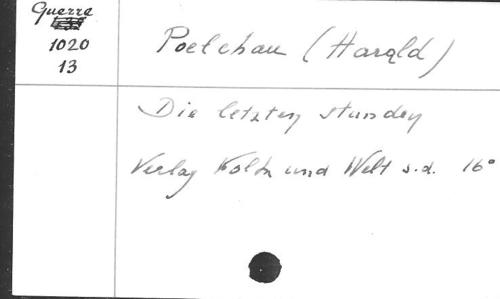 Guerre
1020
13
Poelchau (Harald)
Die letzten stunden
Verlag Volk und Welt s.d. 16°